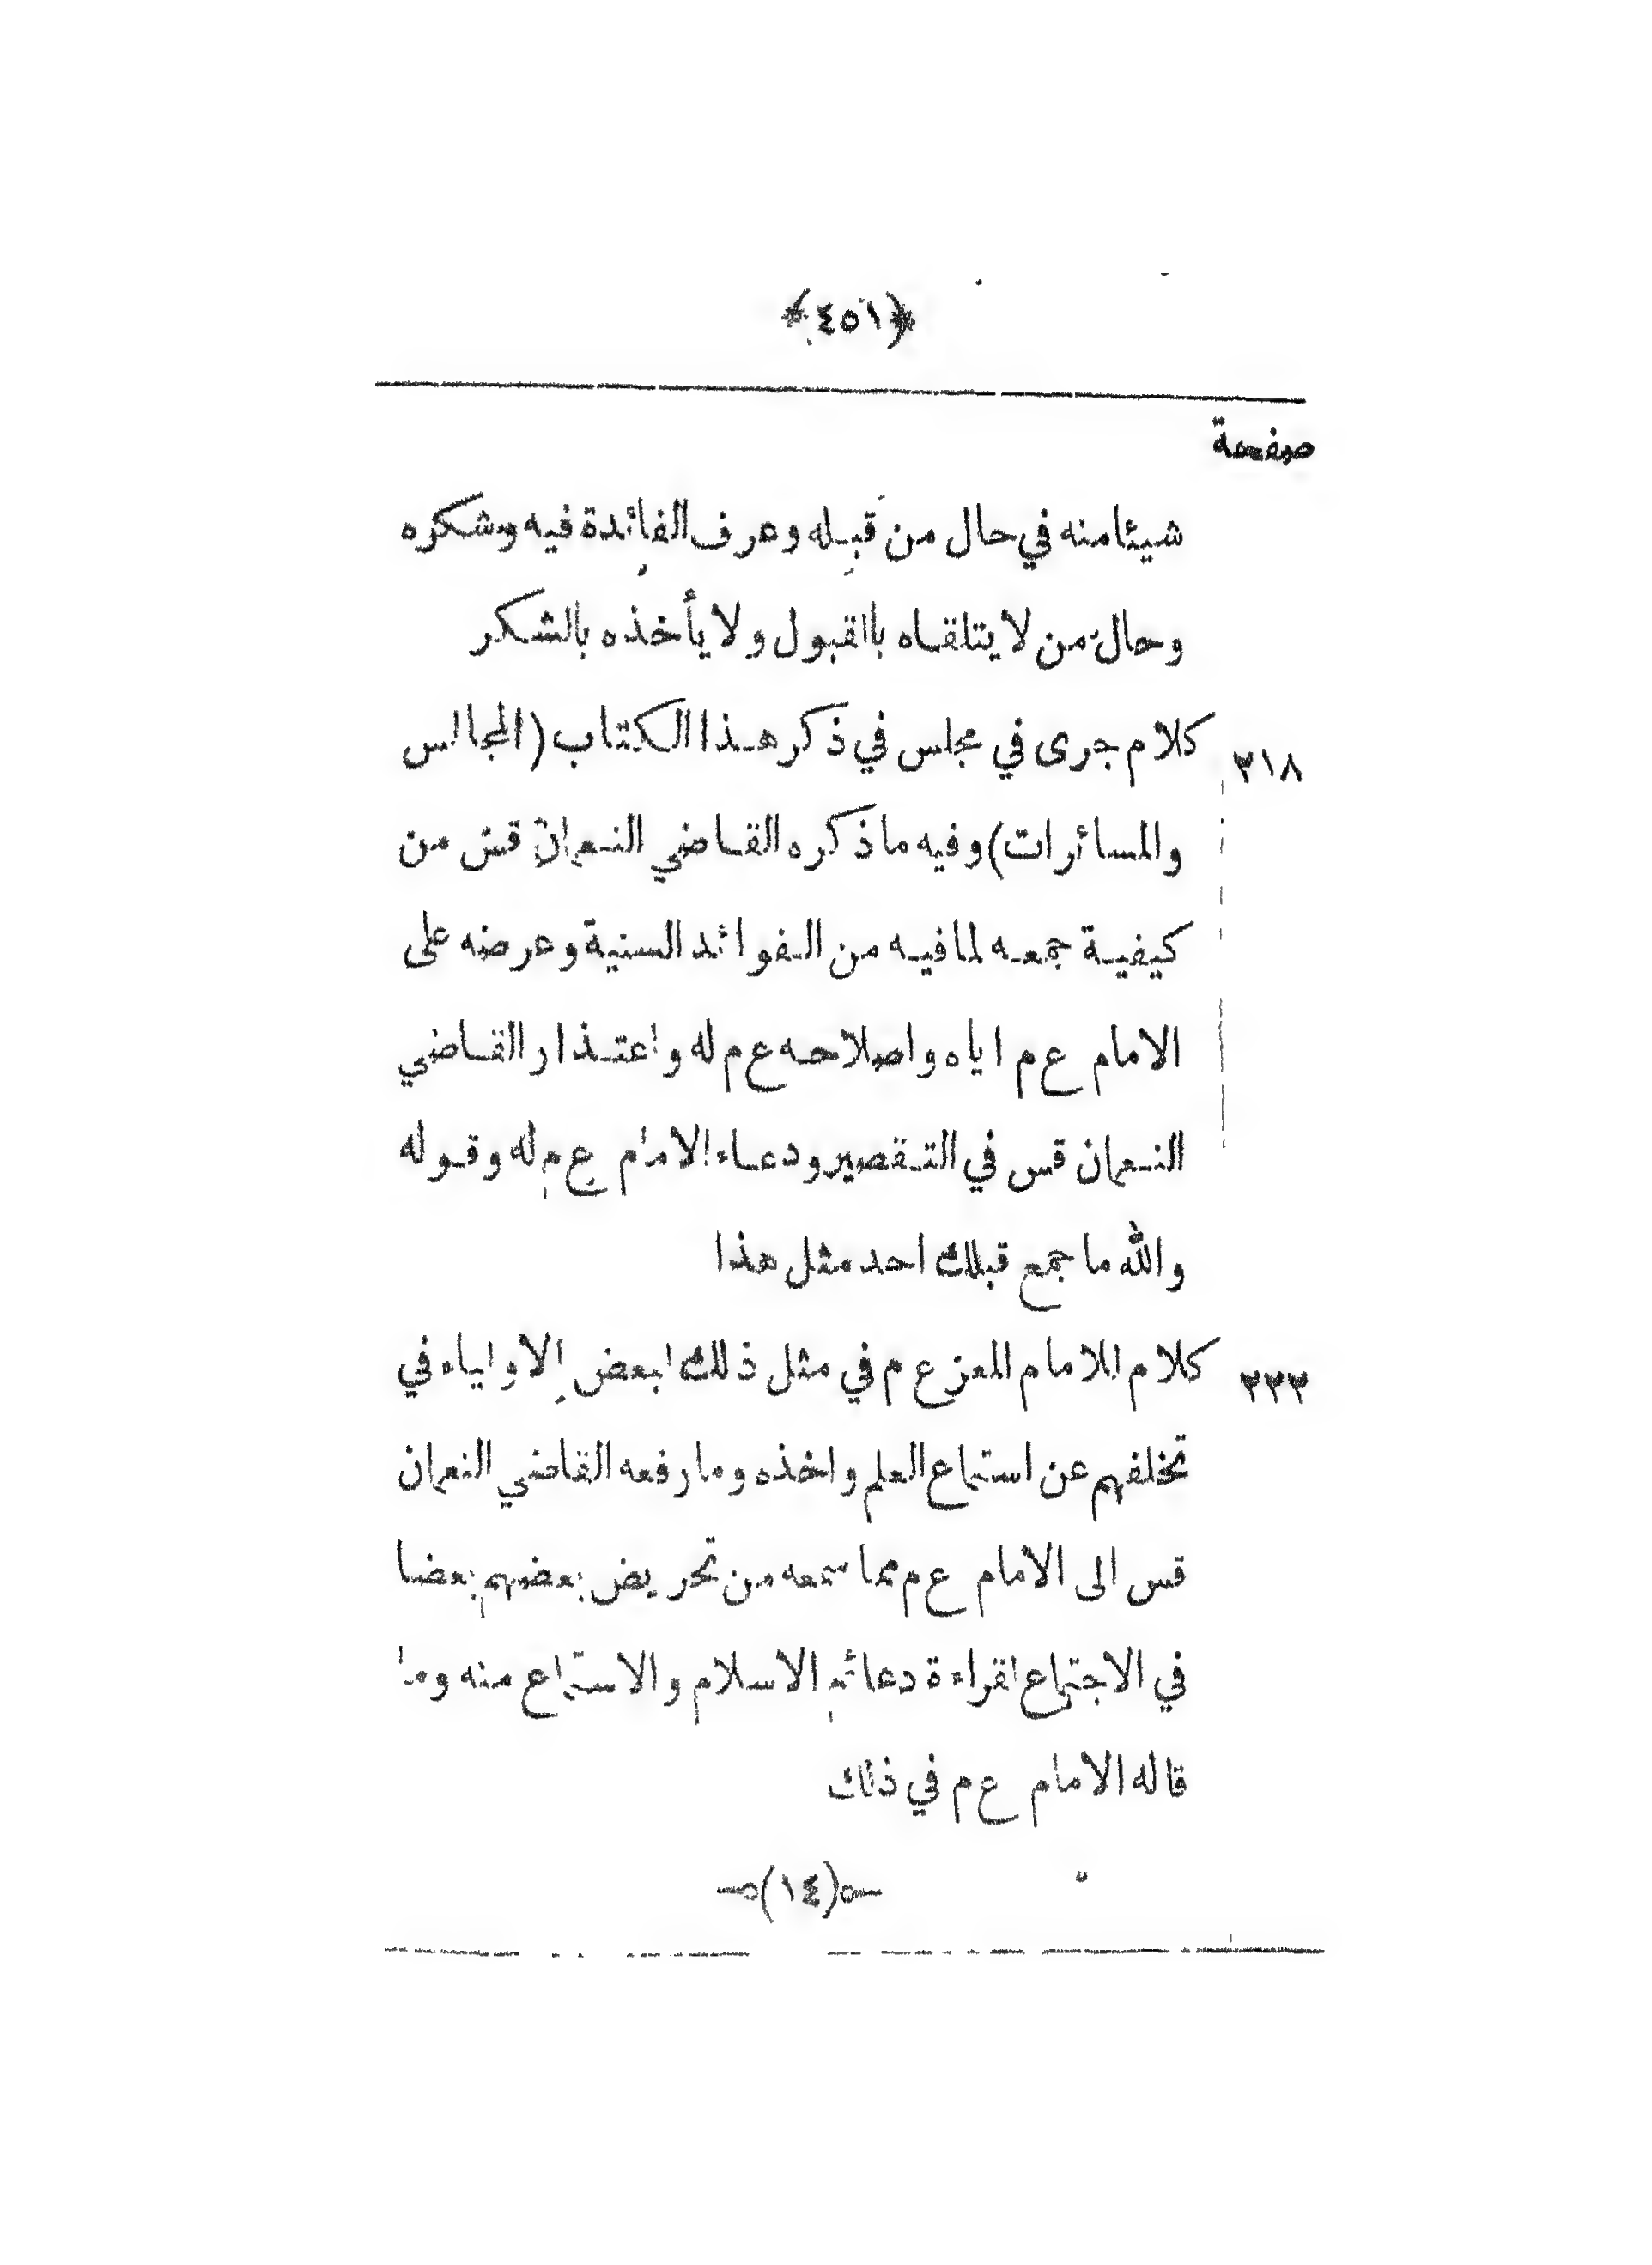 ﴿٤٥١﴾
صفحة
شيئا منه في حال من قبله وعرف الفائدة فيه وشكره
وحال من لا يتلقاه بالقبول ولا يأخذه بالشكر
٢١٨ كلام جرى في مجلس في ذكر هذا الكتاب (المجالس
والمسائرات) وفيه ما ذكره القاضي النعمان قس من
كيفية جمعه لما فيه من الفوائد السنية وعرضه على
الامام ع م اياه واصلاحه ع م له واعتذار القاضي
النعمان قس في التقصير ودعاء الامام ع م له وقوله
والله ما جمع قبلك احد مثل هذا
٢٢٢ كلام للامام المعز ع م في مثل ذلك لبعض الاولياء في
تخلفهم عن استماع العلم واخذه وما رفعه القاضي النعمان
قس الى الامام ع م مما سمعه من تحريض بعضهم بعضا
في الاجتماع لقراءة دعائم الاسلام والاستماع منه وما
قاله الامام ع م في ذلك
(١٤)